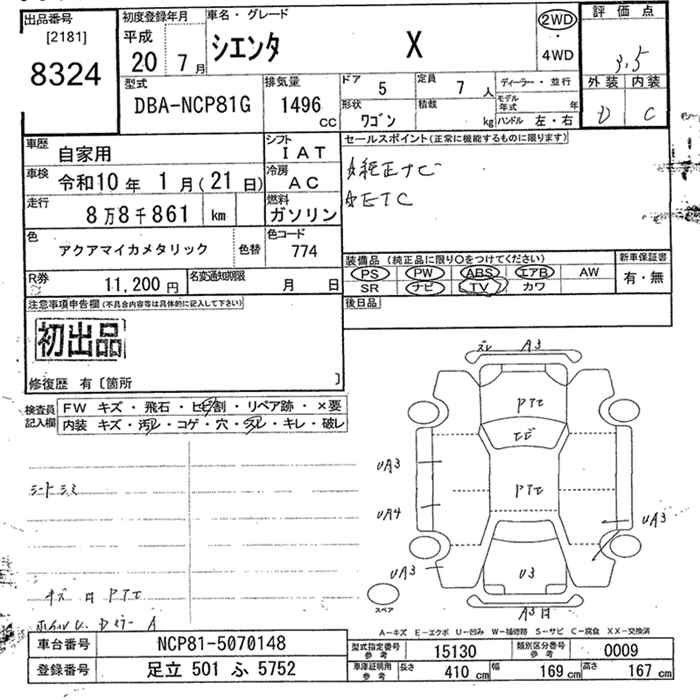 出品番号
[2181]
8324
初度登録年月
平成
20年 7月
車名・グレード
シエンタ X
2WD
・
4WD
評価点
3.5
外装 内装
D C
型式
DBA-NCP81G
排気量
1496
CC
ドア 5
定員 7 人
形状 ワゴン
積載 kg
ディーラー・並行
モデル年式 年
ハンドル 左・右
車歴
自家用
シフト
IAT
車検
令和10年 1月(21日)
冷房
AC
走行
8万8千861 km
燃料
ガソリン
色
アクアマイカメタリック
色替
色コード
774
R券
11,200円
名変通知期限
月 日
セールスポイント(正常に機能するものに限ります)
純正ナビ
ETC
装備品(純正品に限り○をつけてください)
PS PW ABS エアB AW
SR ナビ TV カワ
新車保証書
有・無
後日品
注意事項申告欄(不具合内容等は具体的に記入して下さい)
初出品
修復歴 有〔箇所 〕
検査員記入欄
FW キズ・飛石・ヒビ割・リペア跡・×要
内装 キズ・汚レ・コゲ・穴・スレ・キレ・破レ
シートシミ
ズレ A3
PTセ
UA3
PTセ
UA4
UA3
UA3
U3
スペア
A-キズ E-エクボ U-凹み W-補修跡 S-サビ C-腐食 XX-交換済
車台番号
NCP81-5070148
登録番号
足立 501 ふ 5752
型式指定番号
参考
15130
類別区分番号
参考
0009
車庫証明用
参考
長さ 410 cm
幅 169 cm
高さ 167 cm